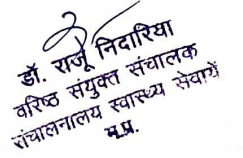 डॉ. राजू निदारिया
वरिष्ठ संयुक्त संचालक
संचालनालय स्वास्थ्य सेवायें
म.प्र.